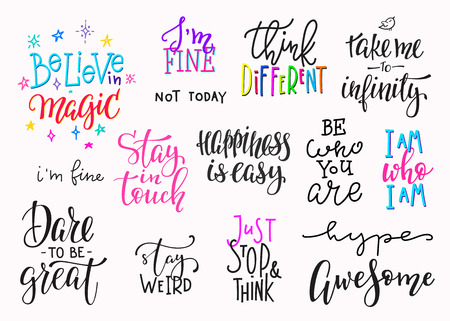 BeLieve in
MAGIC
I'm
FINE
NOT TODAY
think
DiFFERENT
take me
to
infinity
i'm fine
Stay
in
touch
Happiness
is easy
BE
who
YOU
are
I AM
who
I AM
Dare
- TO BE -
great
stay
WEIRD
JuST
STOP &
THINK
hype
Awesome